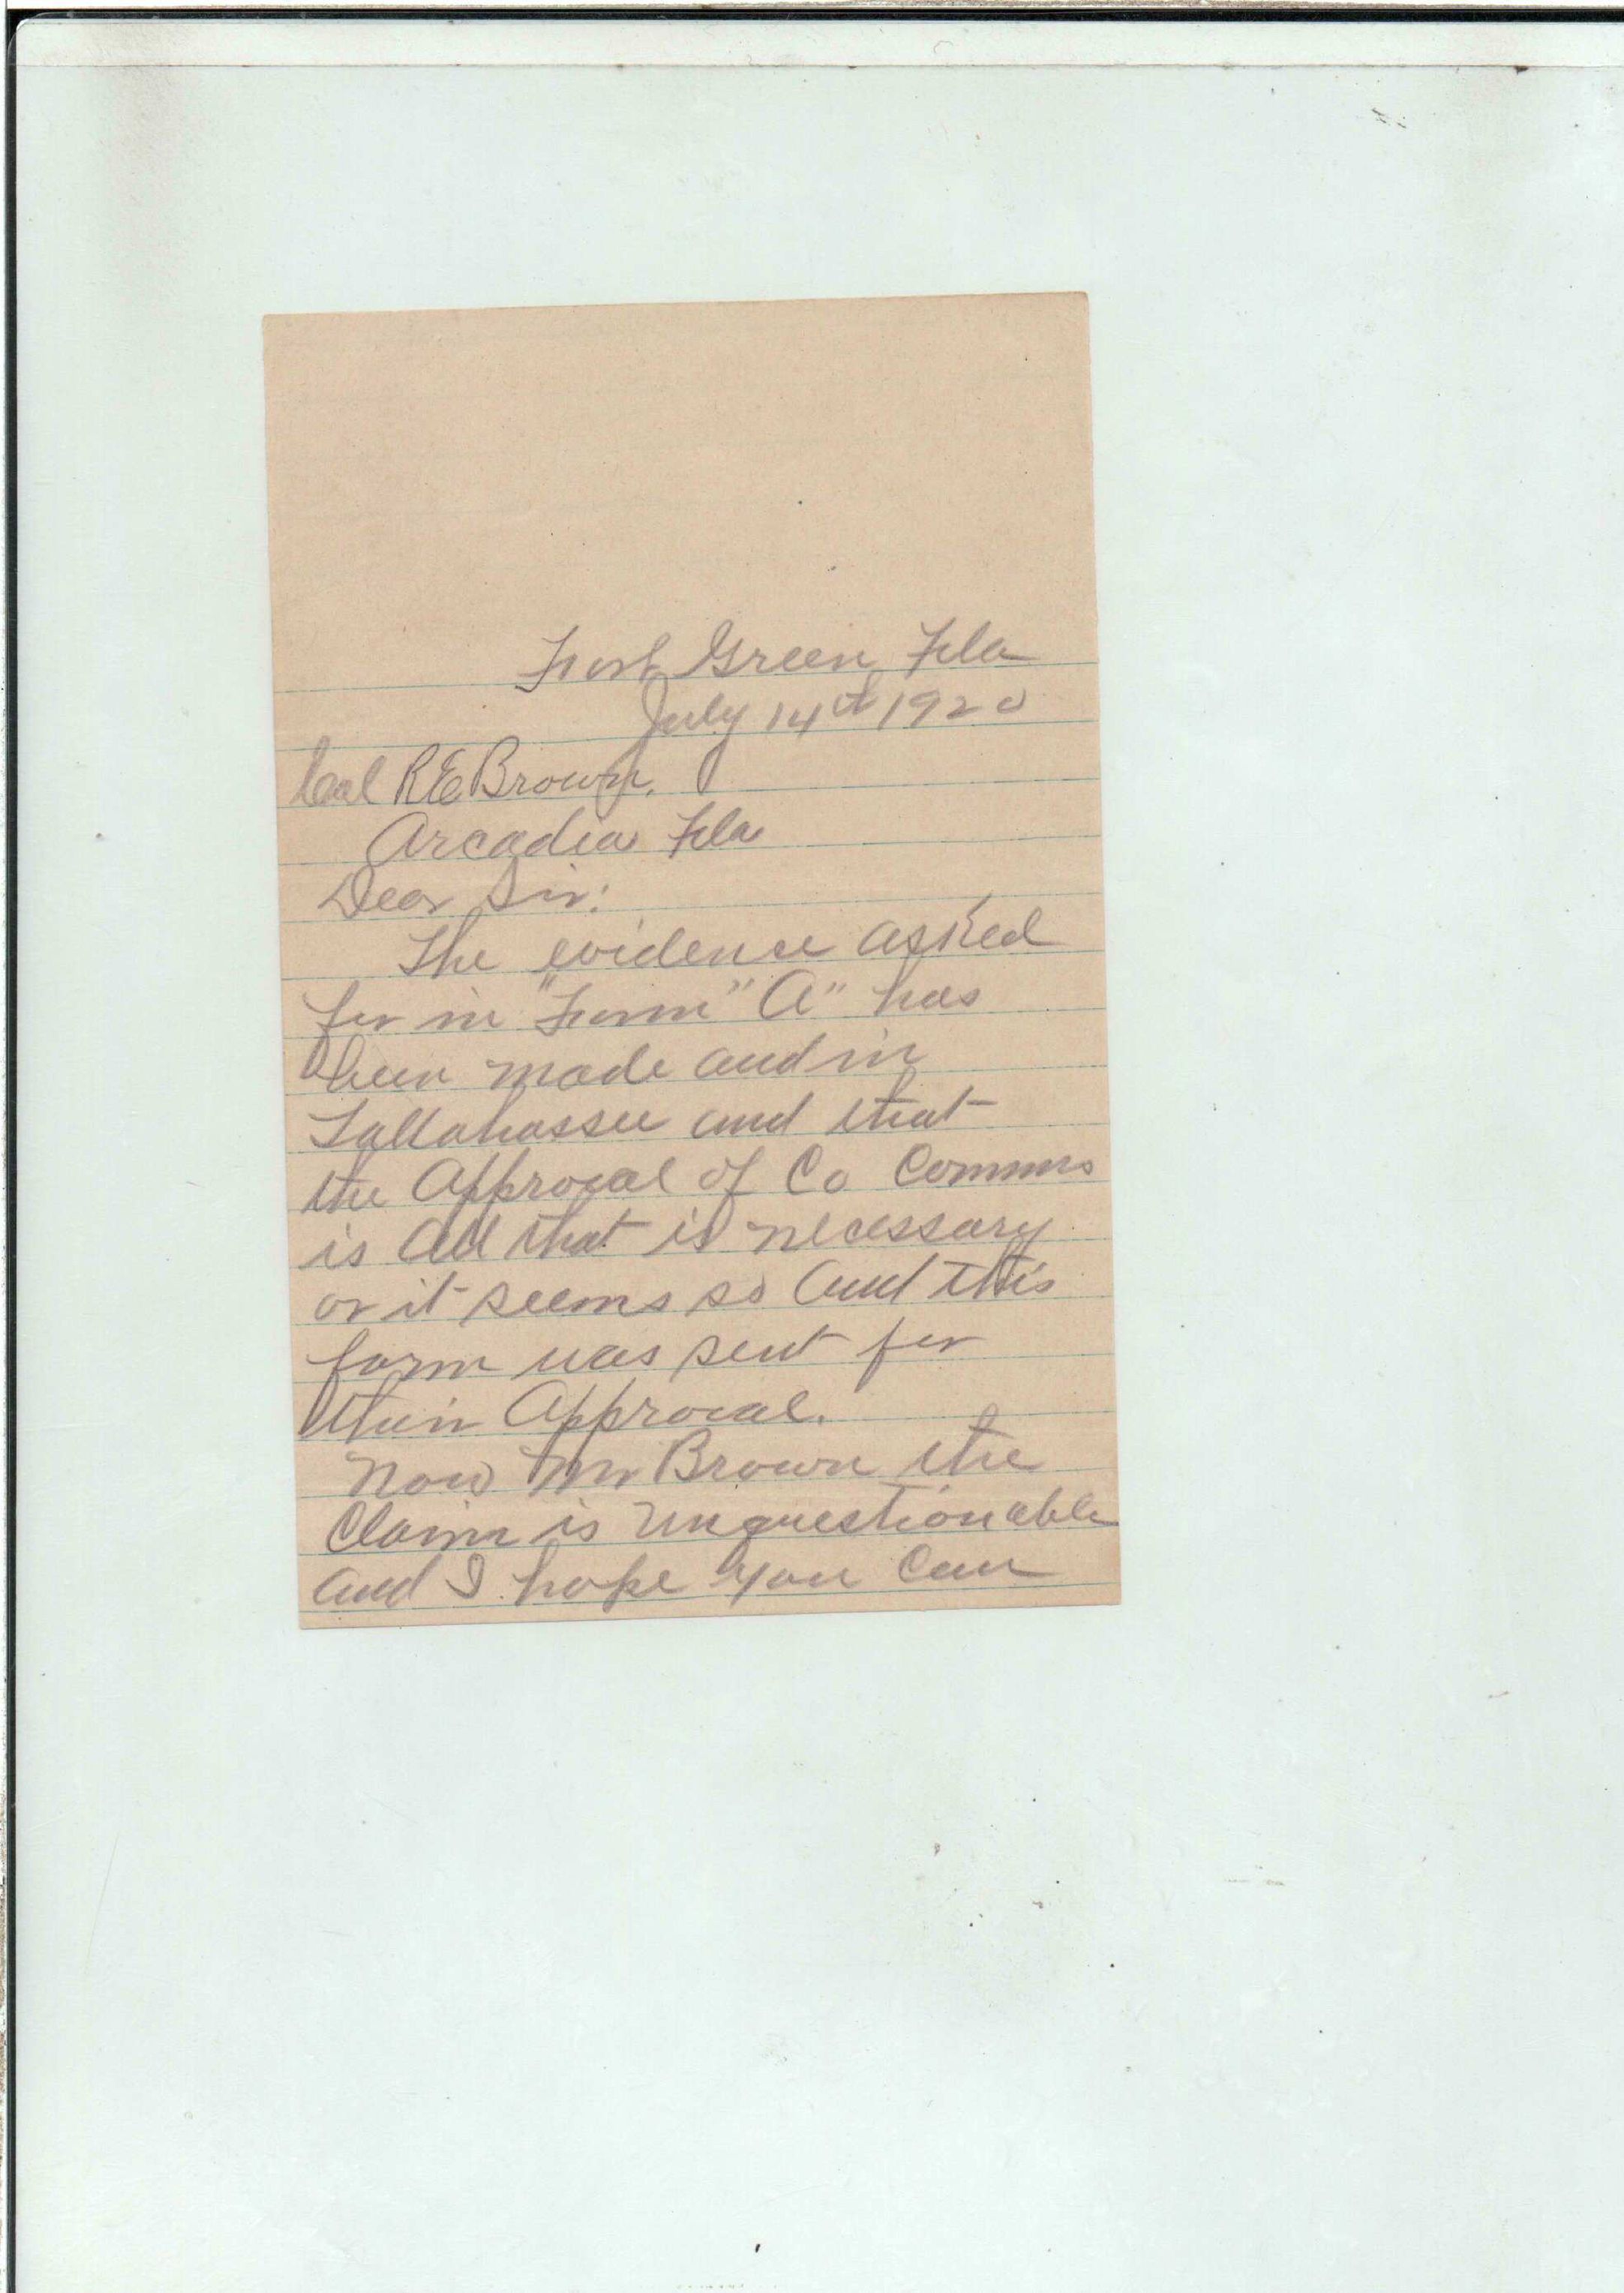 Fort Green Fla
July 14th 1920
Col R E Brown.
Arcadia Fla
Dear Sir:
The evidence asked
for in "Form" "A" has
been made and in
Tallahassee and that
the Approval of Co Comms
is All that is necessary
or it seems so And this
form was sent for
their Approval.
Now Mr Brown the
Claim is unquestionable
And I hope you Can